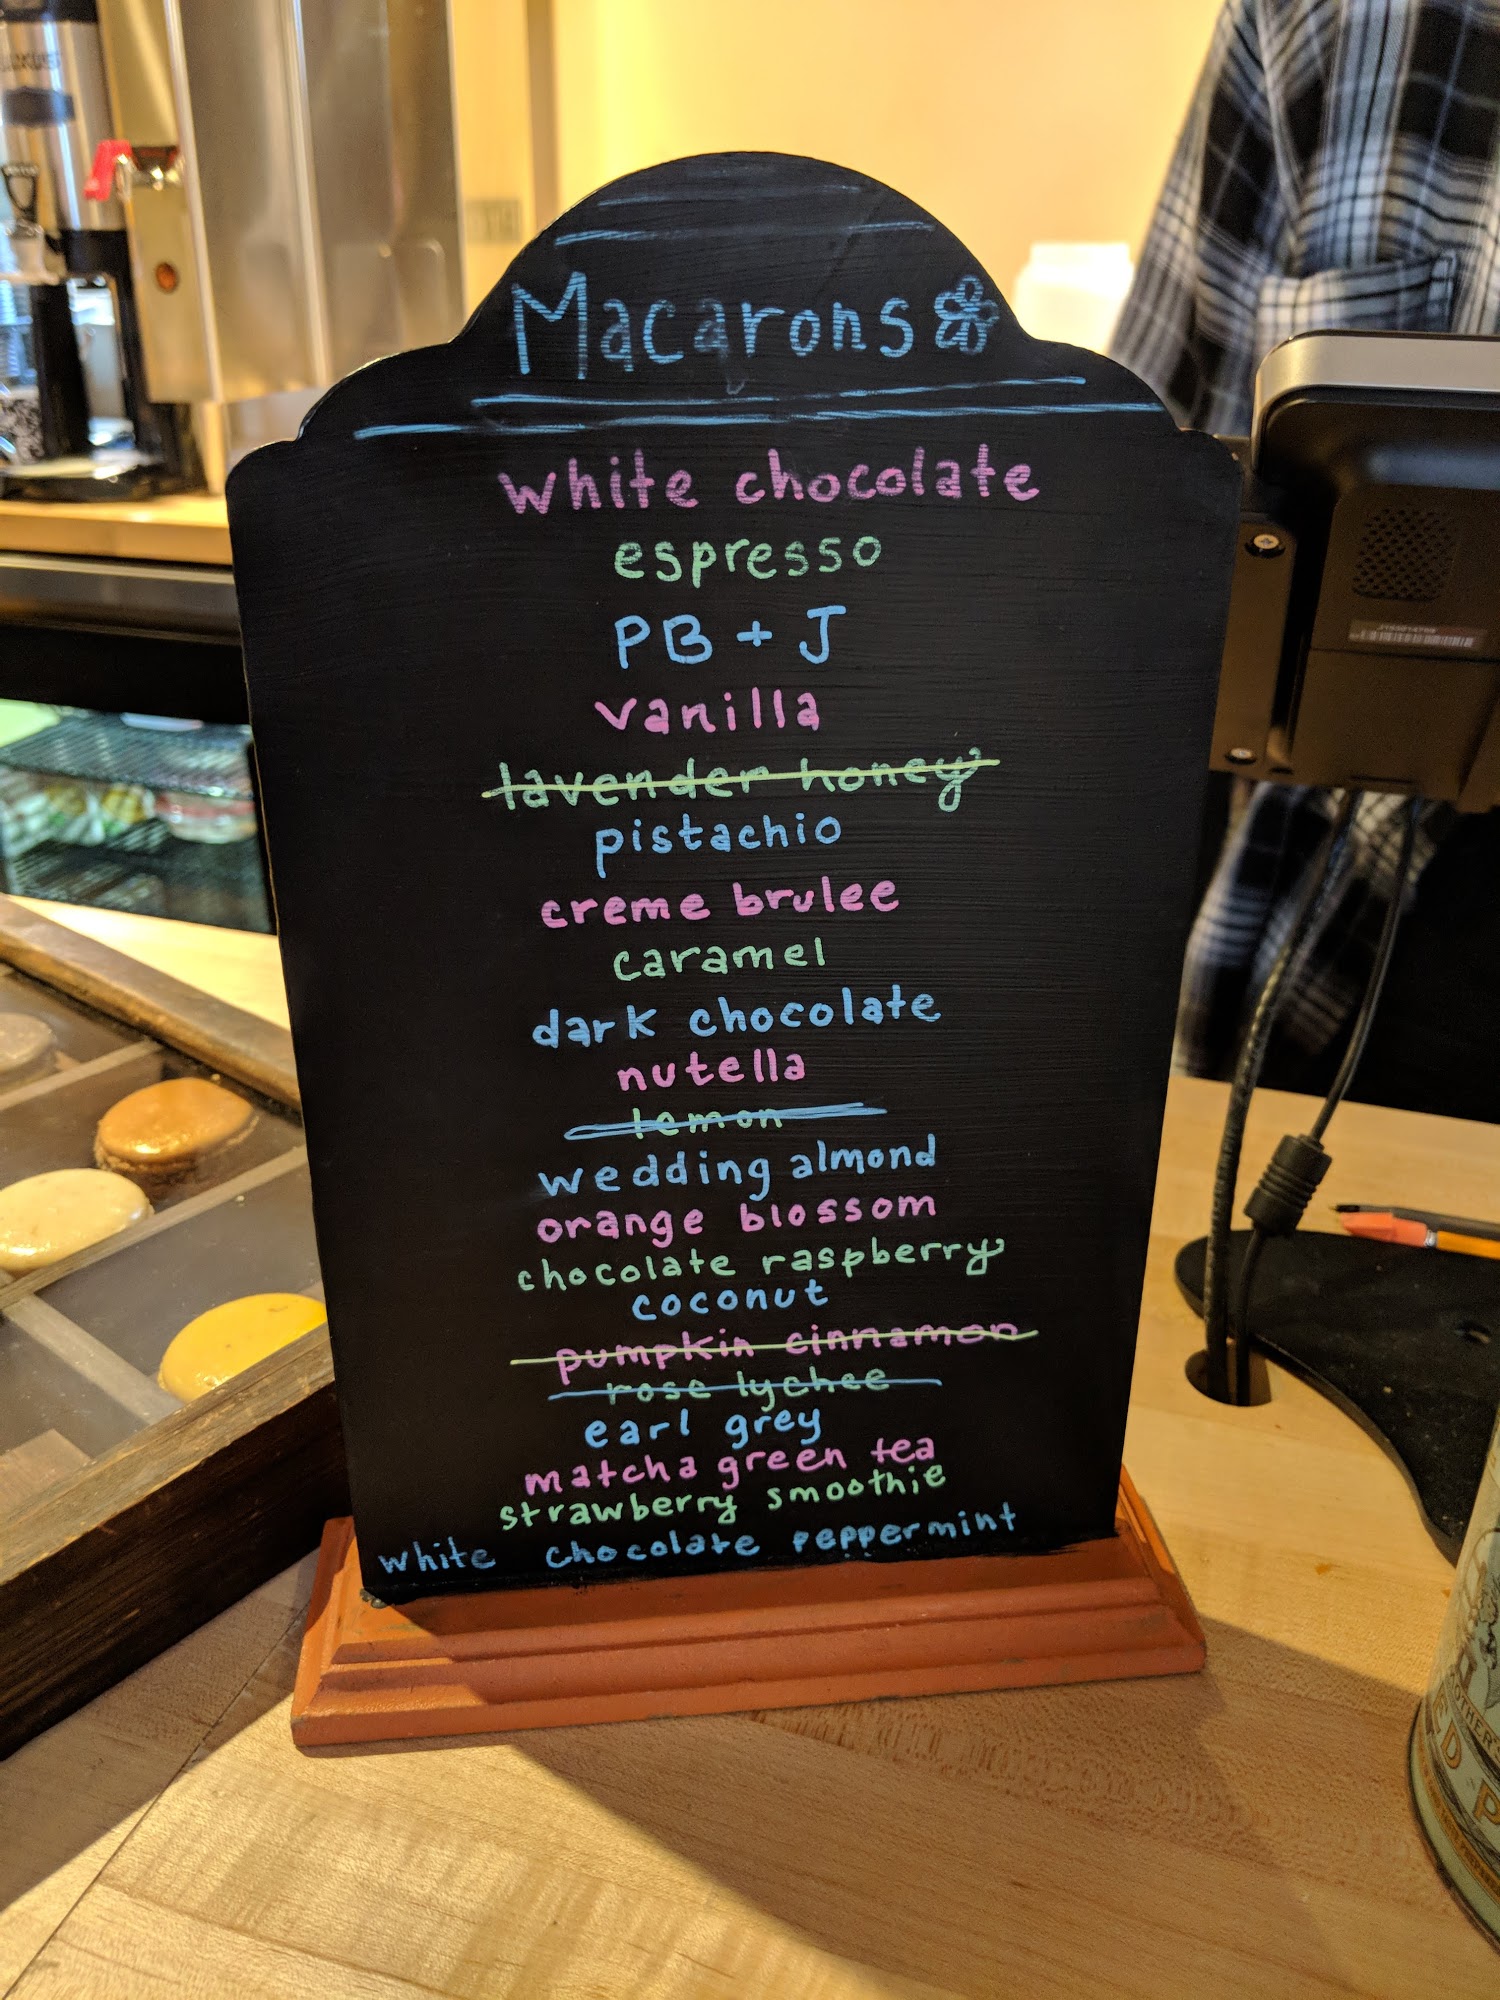 Macarons
white chocolate
espresso
PB + J
vanilla
lavender honey
pistachio
creme brulee
caramel
dark chocolate
nutella
lemon
wedding almond
orange blossom
chocolate raspberry
coconut
pumpkin cinnamon
rose lychee
earl grey
matcha green tea
strawberry smoothie
white chocolate peppermint